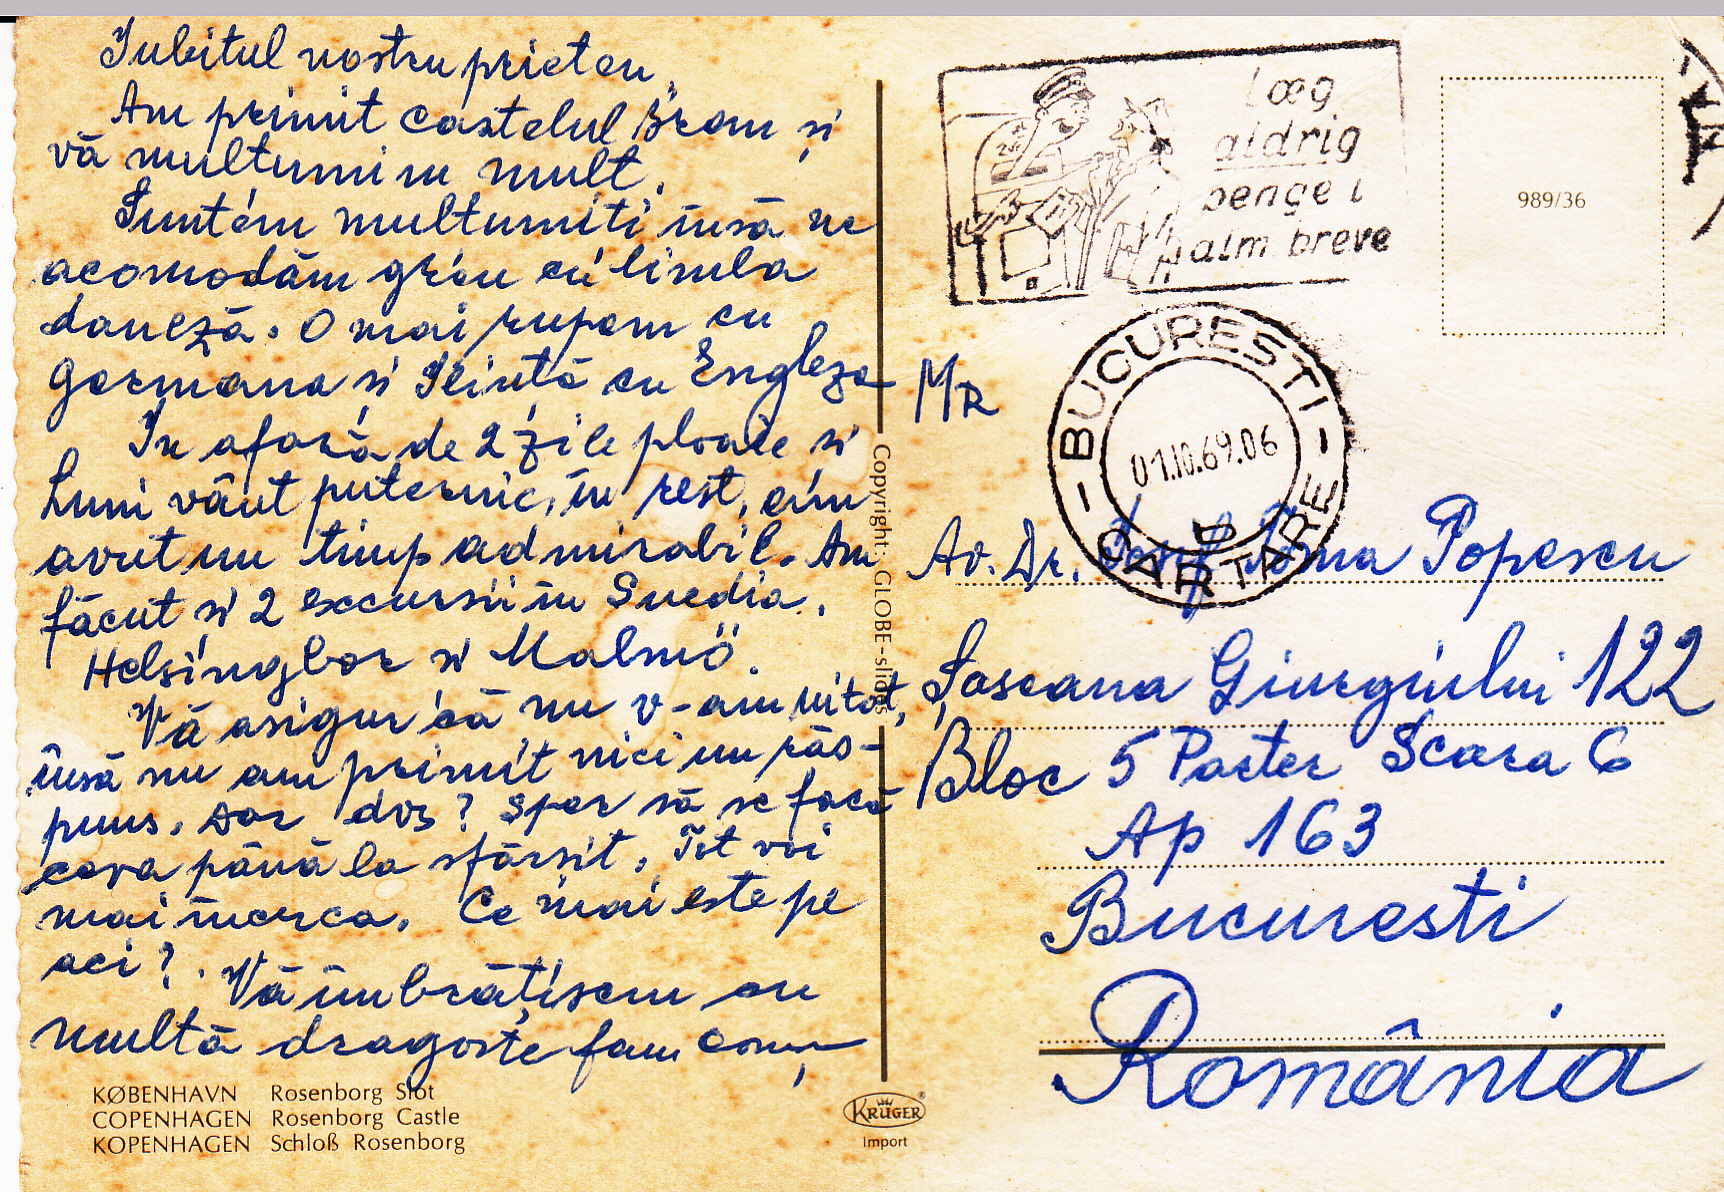 Iubitul nostru prieten,
Am primit castelul Bran și
vă multumim mult.
Suntem multumiti însă ne
acomodăm greu cu limba
daneză. O mai rupem cu
Germana și Ilinuță cu Engleza
În afară de 2 zile ploaie și
Luni vânt puternic, în rest, am
avut un timp admirabil. Am
făcut si 2 excursii în Suedia,
Helsingbor si Malmö.
Vă asigur că nu v-am uitat,
însă nu am primit nici un răs-
puns. Dar dvs? Sper să se facă
ceva până la sfârsit. Tot voi
mai încerca. Ce mai este pe
aci? Vă îmbrățisem cu
multă dragoste fam
KØBENHAVN Rosenborg Slot
COPENHAGEN Rosenborg Castle
KOPENHAGEN Schloß Rosenborg
Copyright: GLOBE-slides
KRÜGER®
Import
Læg
aldrig
penge i
alm. breve
989/36
BUCURESTI
01.10.69.06
CARTARE
MR
Av. Dr. Iosif Toma Popescu
Soseaua Giurgiului 122
Bloc 5 Parter Scara 6
Ap 163
Bucuresti
România